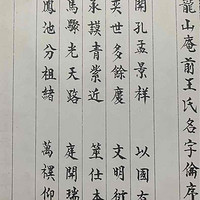 龍山庵前王氏名字倫序
開孔孟景祥 以國
奕世多餘慶 文明衍
承謨青紫近 筮仕本
馬驟光天路 庭開瑞
鳳池分祖緒 萬禩仰